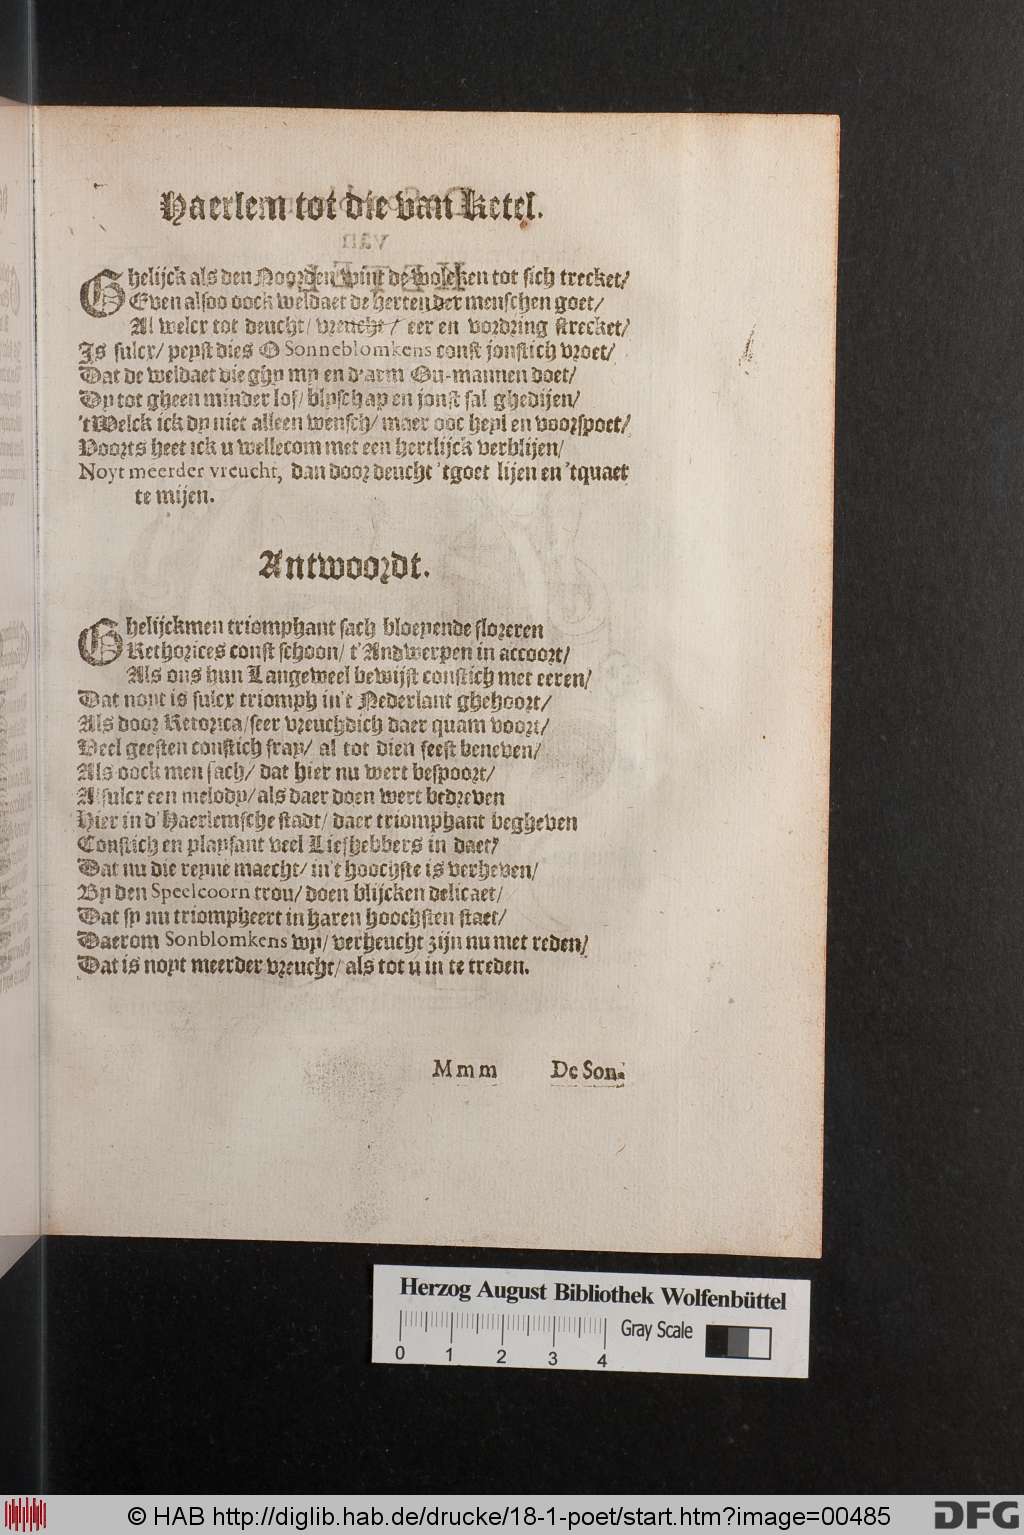 Haerlem tot die van Ketel.
Ghelijck als den Noorden wint de wolcken tot sich trecket/
Even alsoo oock weldaet de herten der menschen goet/
Al welcr tot deucht/ vreucht/ eer en vordring strecket/
Is sulcx/ peyst dies O Sonneblomkens const jonstich vroet/
Dat de weldaet die ghy my en d'arm Ou-mannen doet/
Dy tot gheen minder lof/ blyschap en jonst sal ghedijen/
'tWelck ick dy niet alleen wensch/ maer ooc heyl en voorspoet/
Voorts heet ick u wellecom met een hertlijck verblijen/
Noyt meerder vreucht, dan door deucht 'tgoet lijen en 'tquaet
te mijen.
Antwoordt.
Ghelijckmen triomphant sach bloeyende floreren
Rethorices const schoon/ t'Andwerpen in accoort/
Als ons hun Langeweel bewijst constich met eeren/
Dat noyt is sulcx triomph in't Nederlant ghehoort/
Als door Retorica/ seer vreuchdich daer quam voort/
Veel geesten constich fray/ al tot dien feest beneven/
Als oock men sach/ dat hier nu wert bespoort/
Alsulcx een melody/ als daer doen wert bedreven
Hier in d'Haerlemsche stadt/ daer triomphant begheven
Constich en playsant veel Liefhebbers in daet/
Dat nu die reyne maecht/ in't hoochste is verheven/
By den Speelcoorn trou/ doen blijcken delicaet/
Dat sy nu triompheert in haren hoochsten staet/
Daerom Sonblomkens wy/ verheucht zijn nu met reden/
Dat is noyt meerder vreucht/ als tot u in te treden.
Mmm De Son-
Herzog August Bibliothek Wolfenbüttel
Gray Scale
0 1 2 3 4
© HAB http://diglib.hab.de/drucke/18-1-poet/start.htm?image=00485
DFG